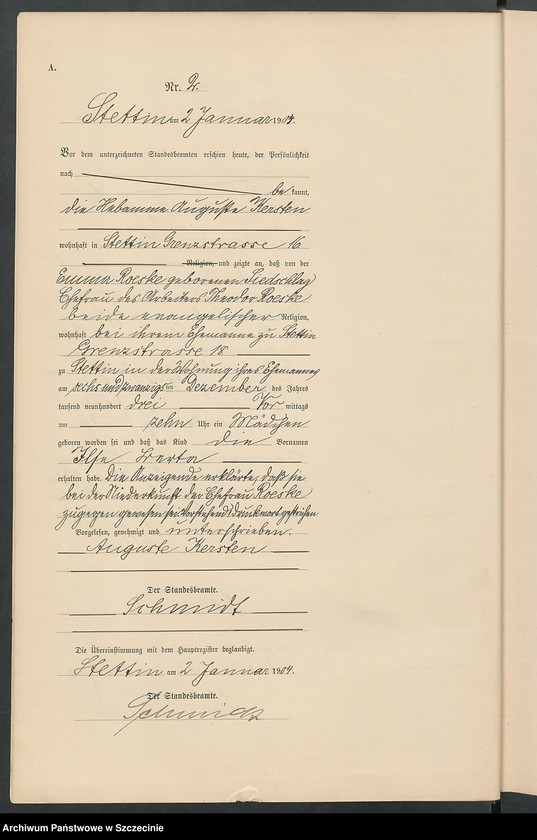 A.
Nr. 2.
Stettin am 2 Januar 1904.
Vor dem unterzeichneten Standesbeamten erschien heute, der Persönlichkeit
nach
be kannt,
die Hebamme Auguste Kersten
wohnhaft in Stettin Grenzstrasse 16
Religion, und zeigte an, daß von der
Emma Roeske geborenen Fiedschlag
Ehefrau des Arbeiters Theodor Roeske
beide evangelischer Religion,
wohnhaft bei ihrem Ehemanne zu Stettin
Grenzstrasse 18
zu Stettin in der Wohnung ihres Ehemannes
am sechs und zwanzigsten Dezember des Jahres
tausend neunhundert drei Vor mittags
um zehn Uhr ein Mädchen
geboren worden sei und daß das Kind die Vornamen
Ilse
erhalten habe. Die Anzeigende erklärte, daß sie
bei der Niederkunft der Ehefrau Roeske
zugegen gewesen sei. Vorstehend Druckwort gestrichen
Vorgelesen, genehmigt und unterschrieben.
Auguste Kersten
Der Standesbeamte.
Schmidt
Die Übereinstimmung mit dem Hauptregister beglaubigt.
Stettin am 2 Januar 1904.
Der Standesbeamte.
Schmidt
Archiwum Państwowe w Szczecinie